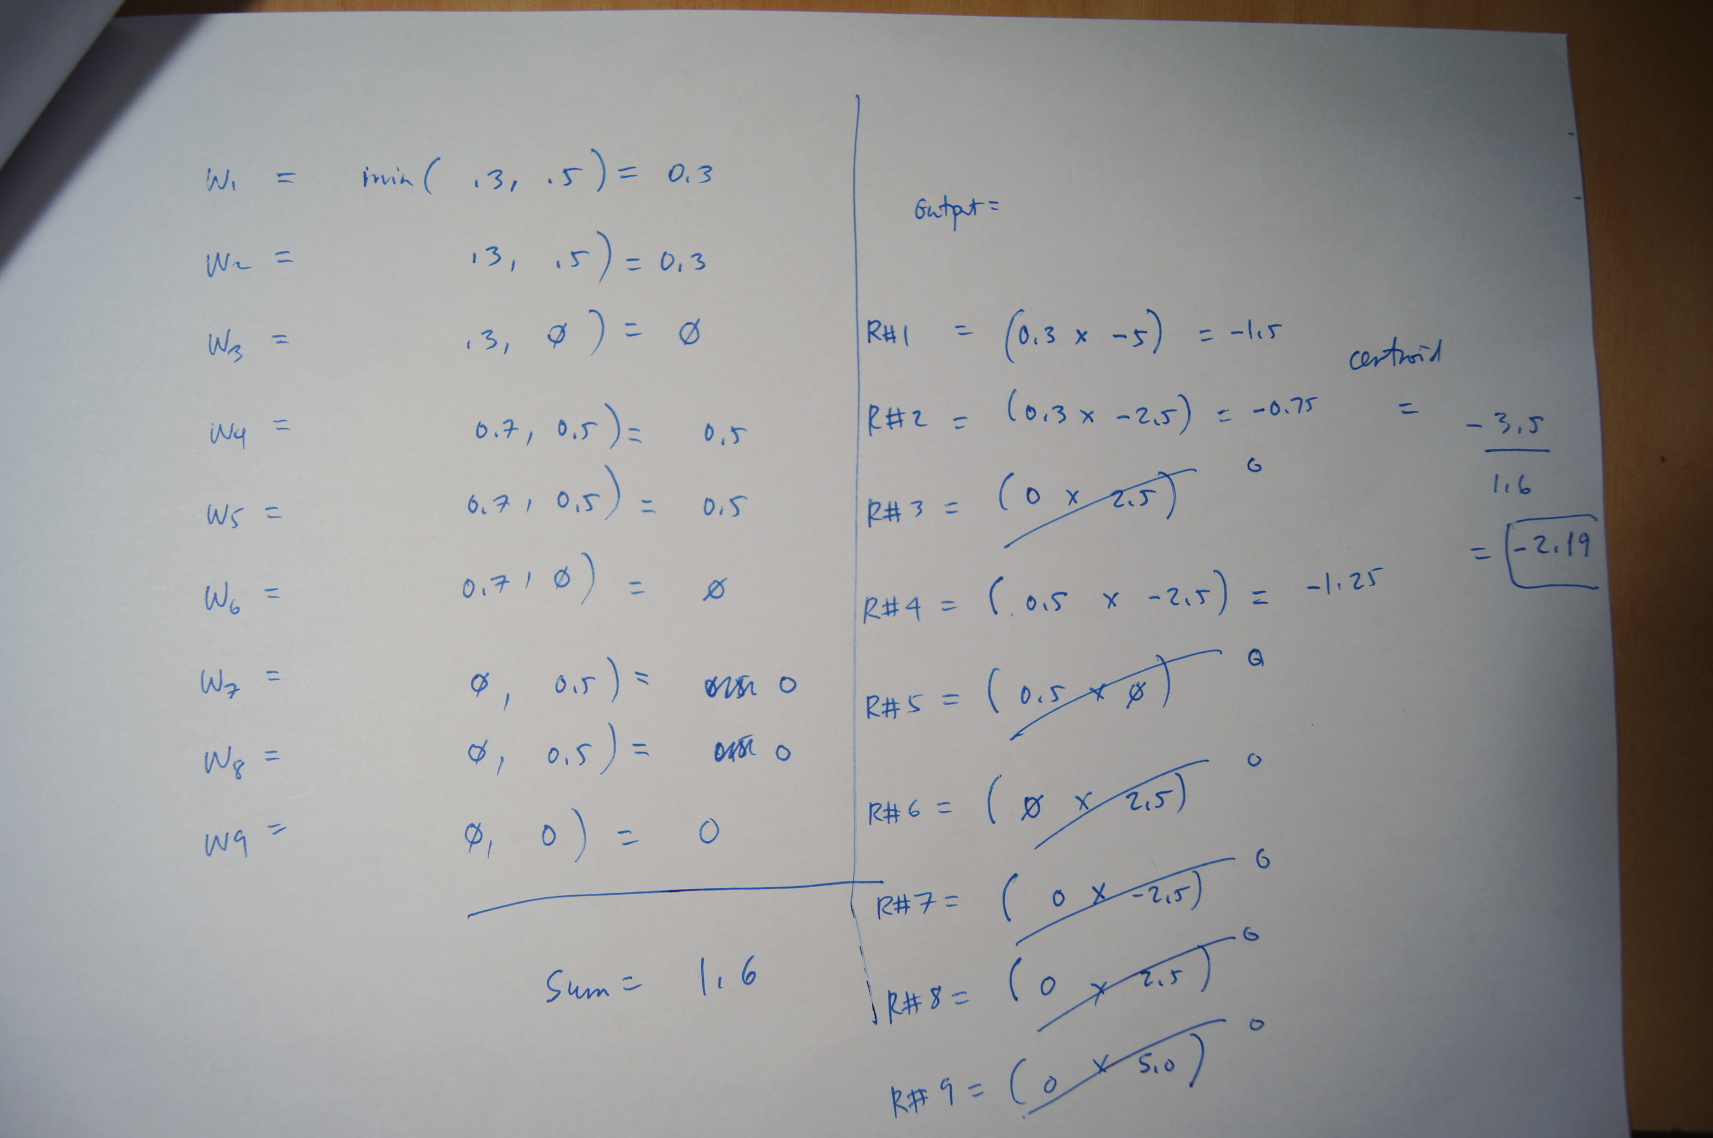 W1 = min( .3, .5) = 0.3
W2 = .3, .5) = 0.3
W3 = .3, ∅) = ∅
W4 = 0.7, 0.5) = 0.5
W5 = 0.7, 0.5) = 0.5
W6 = 0.7, ∅) = ∅
W7 = ∅, 0.5) = 0
W8 = ∅, 0.5) = 0
W9 = ∅, 0) = 0
Sum = 1.6
Output =
R#1 = (0.3 x -5) = -1.5
R#2 = (0.3 x -2.5) = -0.75
R#3 = (0 x 2.5) 0
R#4 = (0.5 x -2.5) = -1.25
R#5 = (0.5 x ∅) 0
R#6 = (∅ x 2.5) 0
R#7 = (0 x -2.5) 0
R#8 = (0 x 2.5) 0
R#9 = (0 x 5.0) 0
centroid
= -3.5
1.6
= -2.19